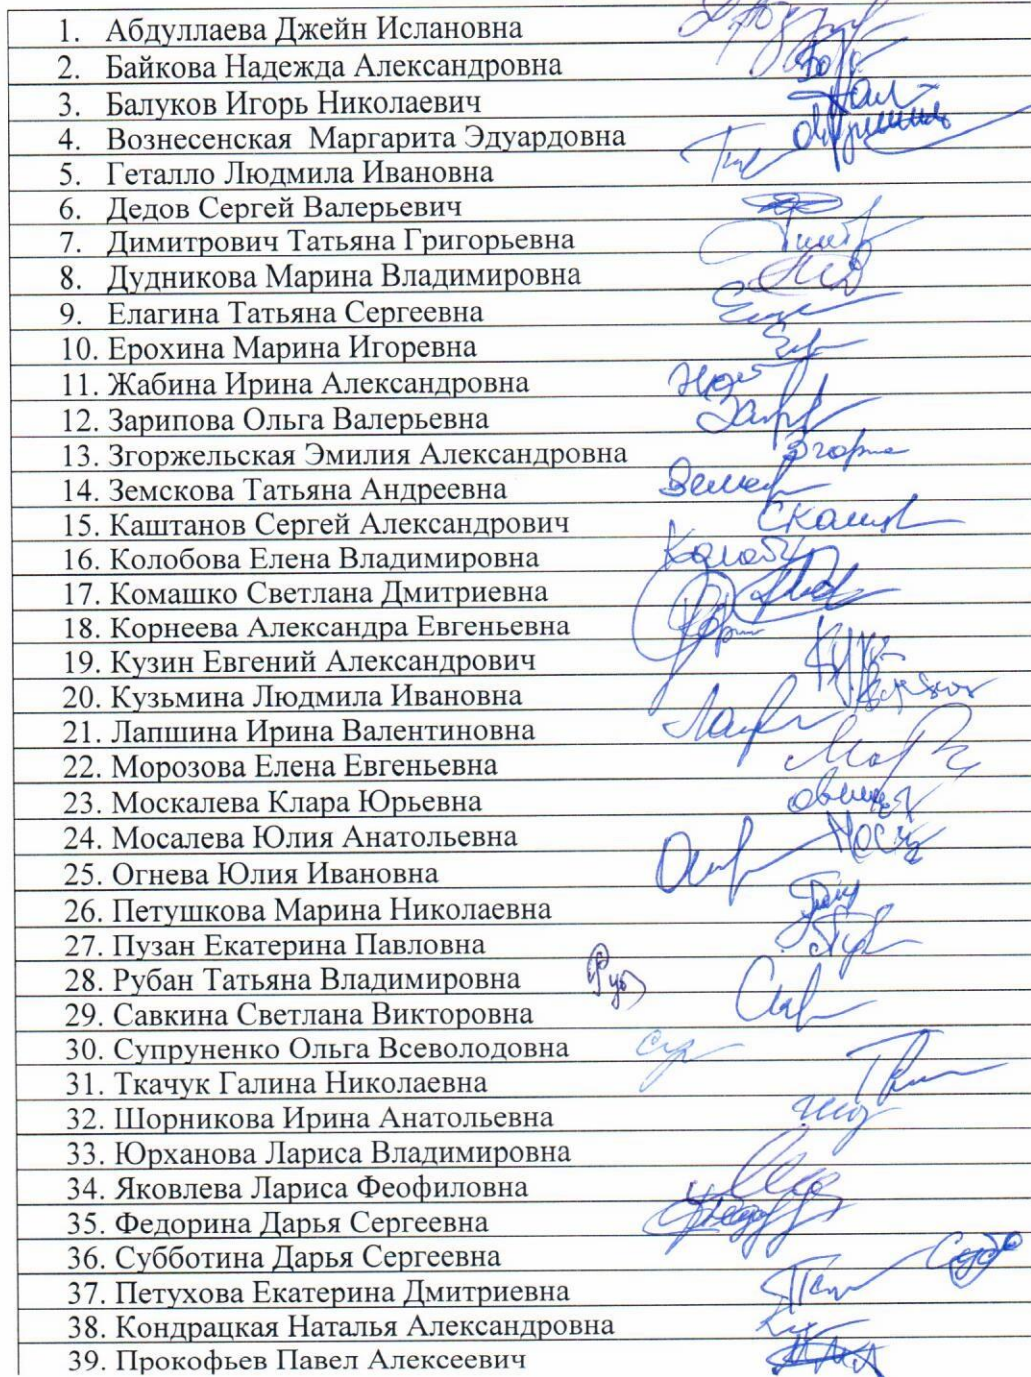 1. Абдуллаева Джейн Ислановна
2. Байкова Надежда Александровна
3. Балуков Игорь Николаевич
4. Вознесенская Маргарита Эдуардовна
5. Геталло Людмила Ивановна
6. Дедов Сергей Валерьевич
7. Димитрович Татьяна Григорьевна
8. Дудникова Марина Владимировна
9. Елагина Татьяна Сергеевна
10. Ерохина Марина Игоревна
11. Жабина Ирина Александровна
12. Зарипова Ольга Валерьевна
13. Згоржельская Эмилия Александровна
14. Земскова Татьяна Андреевна
15. Каштанов Сергей Александрович
16. Колобова Елена Владимировна
17. Комашко Светлана Дмитриевна
18. Корнеева Александра Евгеньевна
19. Кузин Евгений Александрович
20. Кузьмина Людмила Ивановна
21. Лапшина Ирина Валентиновна
22. Морозова Елена Евгеньевна
23. Москалева Клара Юрьевна
24. Мосалева Юлия Анатольевна
25. Огнева Юлия Ивановна
26. Петушкова Марина Николаевна
27. Пузан Екатерина Павловна
28. Рубан Татьяна Владимировна
29. Савкина Светлана Викторовна
30. Супруненко Ольга Всеволодовна
31. Ткачук Галина Николаевна
32. Шорникова Ирина Анатольевна
33. Юрханова Лариса Владимировна
34. Яковлева Лариса Феофиловна
35. Федорина Дарья Сергеевна
36. Субботина Дарья Сергеевна
37. Петухова Екатерина Дмитриевна
38. Кондрацкая Наталья Александровна
39. Прокофьев Павел Алексеевич